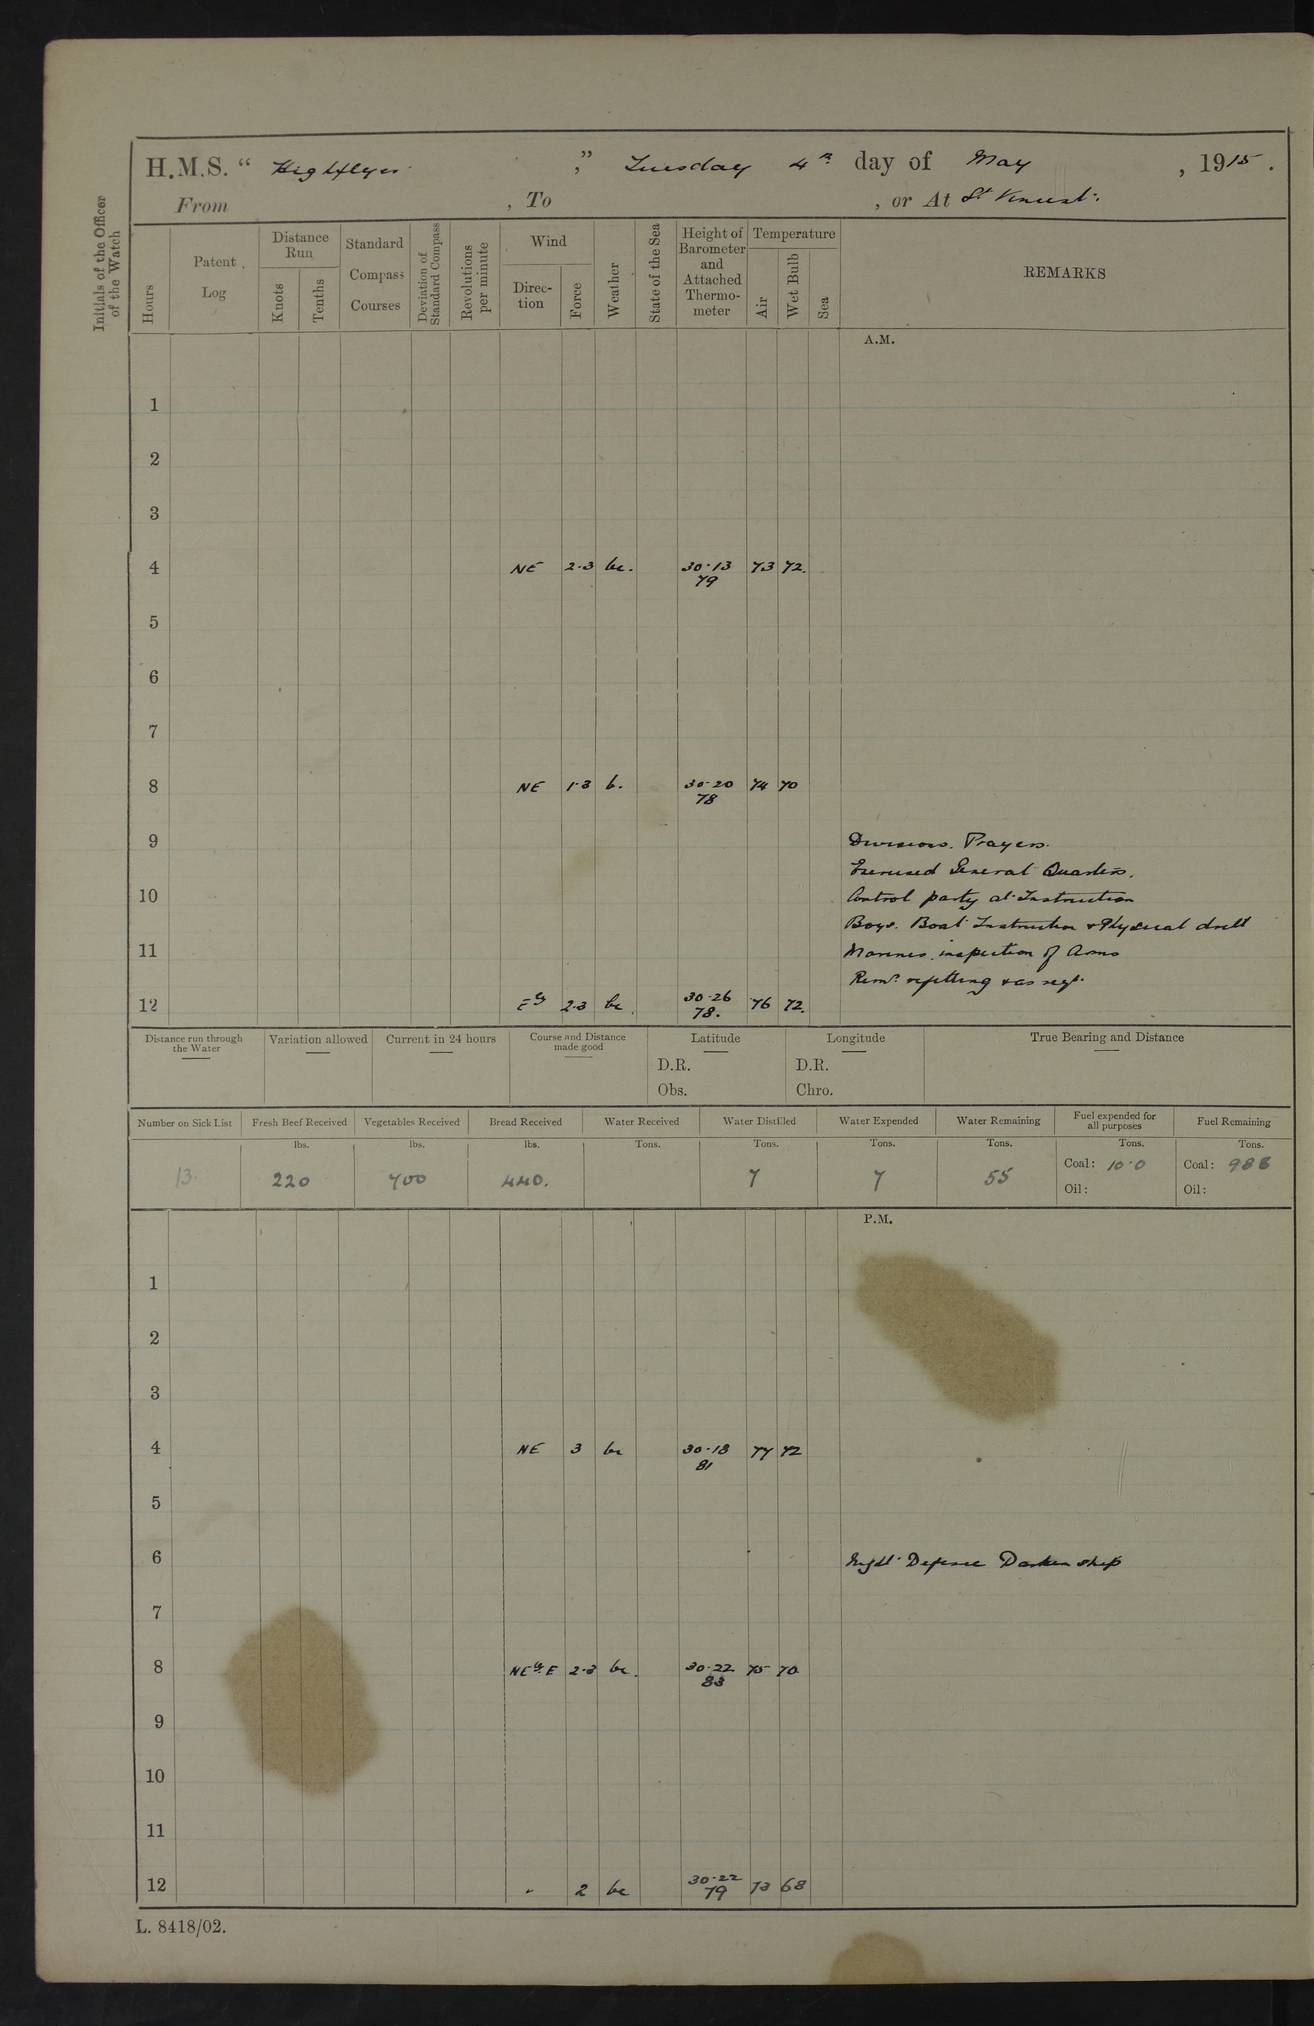 H.M.S. “ Highflyer ,” Tuesday 4th day of May , 1915 .
From , To , or At St Vincent.
Initials of the Officer of the Watch
Hours
Patent Log
Distance Run
Knots
Tenths
Standard Compass Courses
Deviation of Standard Compass
Revolutions per minute
Wind
Direc-tion
Force
Weather
State of the Sea
Height of Barometer and Attached Thermo-meter
Temperature
Air
Wet Bulb
Sea
REMARKS
A.M.
1
2
3
4 NE 2·3 bc. 30·13 73 72.
79
5
6
7
8 NE 1·3 b. 30·20 74 70
78
9 Divisions. Prayers.
Exercised General Quarters.
10 Control party at Instruction
Boys. Boat Instruction & Physical drill
11 Marines. inspection of Arms
Remr refitting & as reqt.
12 Ely 2·3 bc. 30·26 76 72.
78.
Distance run through the Water
Variation allowed
Current in 24 hours
Course and Distance made good
Latitude
D.R.
Obs.
Longitude
D.R.
Chro.
True Bearing and Distance
Number on Sick List Fresh Beef Received Vegetables Received Bread Received Water Received Water Distilled Water Expended Water Remaining Fuel expended for all purposes Fuel Remaining
lbs. lbs. lbs. Tons. Tons. Tons. Tons. Tons. Tons.
13 220 400 440. 7 7 55 Coal: 10·0 Coal: 988
Oil: Oil:
P.M.
1
2
3
4 NE 3 bc 30·18 77 72
81
5
6 Night Defence Darken ship
7
8 NE by E 2·3 bc. 30·22 75 70
83
9
10
11
12 " 2 bc 30·22 73 68
79
L. 8418/02.